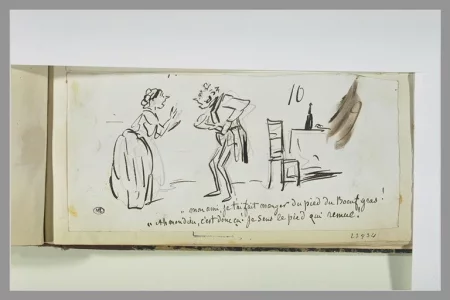 10
„ mon ami, je t'ai fait manger du pied du Boeuf gras !
„ Ah mon dieu, c'est donc ça ! je sens le pied qui remue."
22934